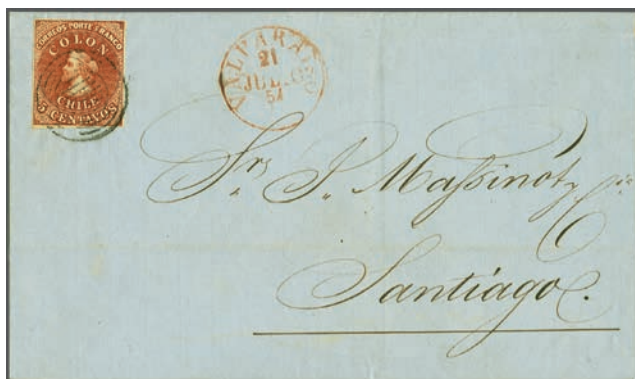 CORREOS PORTE FRANCO
COLON
CHILE
5 CENTAVOS
VALPARAISO
21
JUL.O
54
Srs J. Maſsinot y Cia
Santiago.